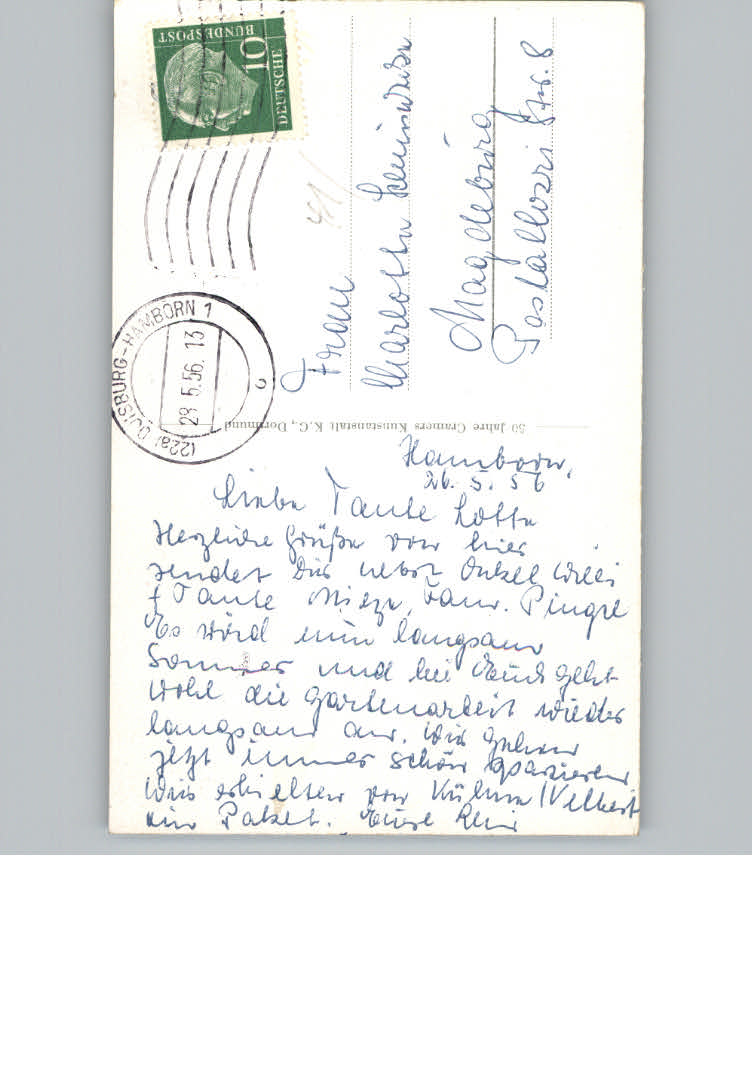 DEUTSCHE
BUNDESPOST
10
(22a) DUISBURG-HAMBORN 1
28.5.56.13
Frau
Charlotte
Magdeburg
Pestallozzi Str. 8
50 Jahre Cramers Kunstanstalt K.G., Dortmund
Hamborn,
26. 5. 56
Liebe Tante Lotte
Herzliche Grüße von hier
sendet Dir nebst Onkel Willi
+ Tante Mieze, Fam. Pingel
Es wird nun langsam
Sommer und bei Euch geht
wohl die Gartenarbeit wieder
langsam an. Wir gehen
jetzt immer schön spazieren
Wir erhielten von
ein Paket. Eure